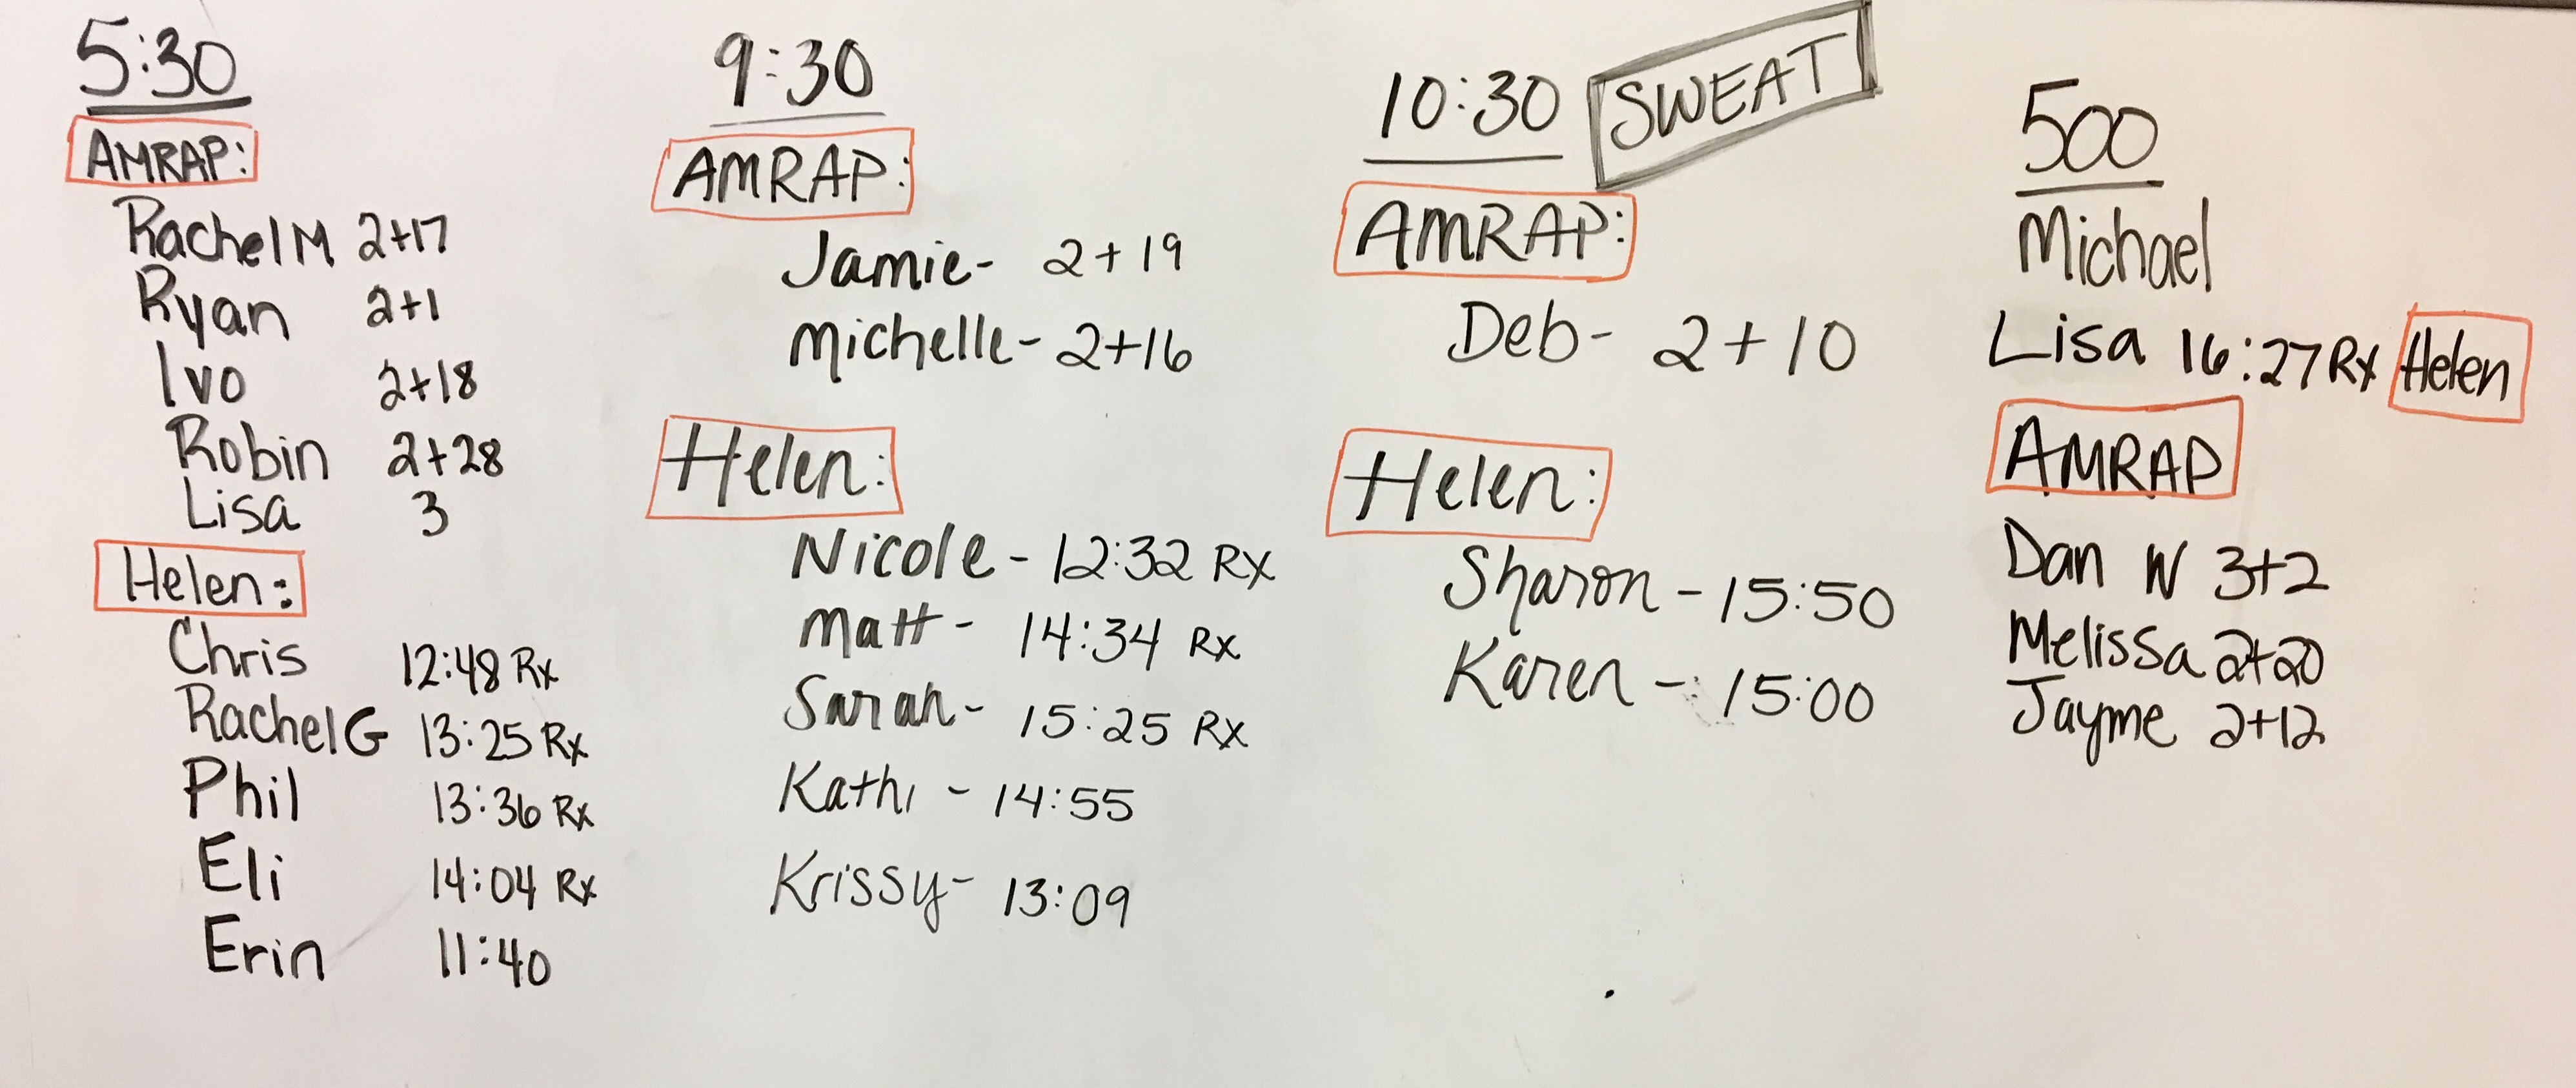 5:30
AMRAP:
Rachel M 2+17
Ryan 2+1
Ivo 2+18
Robin 2+28
Lisa 3
Helen:
Chris 12:48 Rx
Rachel G 13:25 Rx
Phil 13:36 Rx
Eli 14:04 Rx
Erin 11:40
9:30
AMRAP:
Jamie- 2+19
Michelle- 2+16
Helen:
Nicole - 12:32 RX
Matt - 14:34 RX
Sarah- 15:25 RX
Kathi - 14:55
Krissy- 13:09
10:30 SWEAT
AMRAP:
Deb- 2+10
Helen:
Sharon - 15:50
Karen - 15:00
500
Michael
Lisa 16:27 Rx Helen
AMRAP
Dan W 3+2
Melissa 2+20
Jayme 2+12